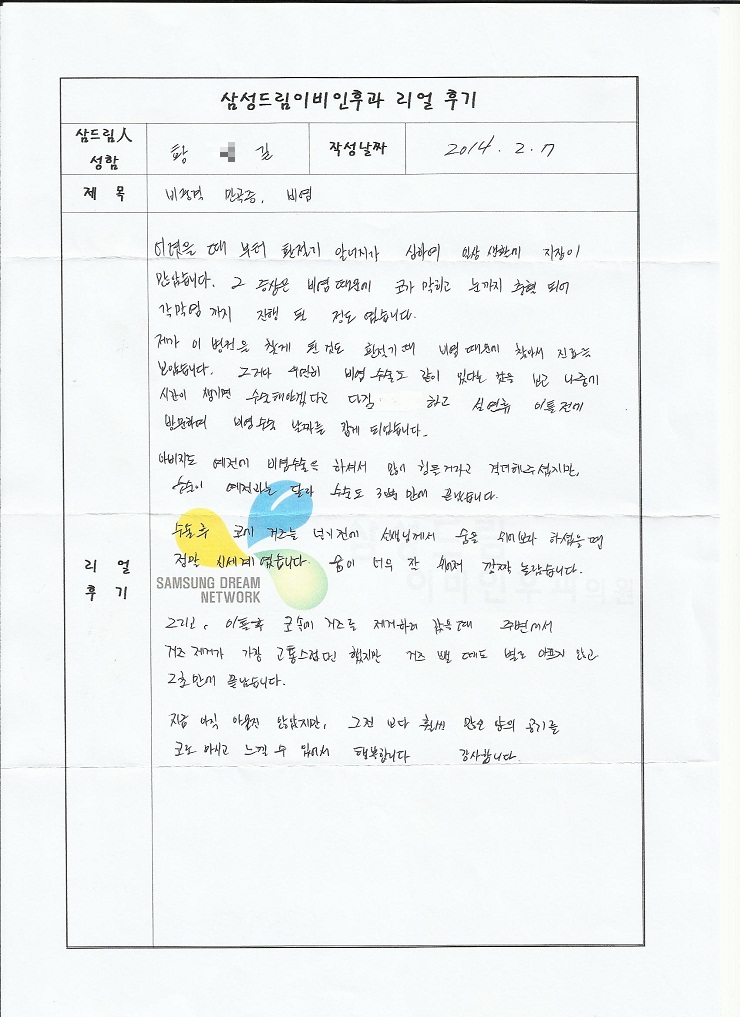 삼성드림이비인후과 리얼 후기
삼드림人
성함
황 길
작성날짜
2014. 2. 7
제 목
비중격 만곡증, 비염
어렸을 때 부터 환절기 알러지가 심하여 일상 생활에 지장이
많았습니다. 그 증상은 비염때문에 코가 막히고 눈까지 충혈 되어
각막염 까지 진행 된 정도 였습니다.
제가 이 병원을 찾게 된 것도 환절기 때 비염 때문에 찾아서 진료를
보았습니다. 그러다 우연히 비염 수술도 같이 있다는 것을 보고 나중에
시간이 생기면 수술해야겠다고 다짐 하고 실연휴 이틀전에
방문하여 비염수술 날짜를 잡게 되었습니다.
아버지도 예전에 비염수술을 하셔서 많이 힘들거라고 격려해주셨지만,
수술이 예전과는 달라 수술도 30분 만에 끝났습니다.
수술후 코에 거즈를 넣기전에 선생님께서 숨을 쉬어보라 하셨을 때
정말 신세계 였습니다. 숨이 너무 잘 쉬어져 깜짝 놀랐습니다.
리 얼
후 기
SAMSUNG DREAM
NETWORK
이비인후과의원
그리고, 이틀후 콧속에 거즈를 제거하러 갔을 때 주변에서
거즈 제거가 가장 고통스럽다 했지만 거즈 뺄 때도 별로 아프지 않고
2초만에 끝났습니다.
지금 아직 아물진 않았지만, 그전 보다 훨씬 많은 양의 공기를
코로 마시고 느낄 수 있어서 행복합니다 감사합니다.